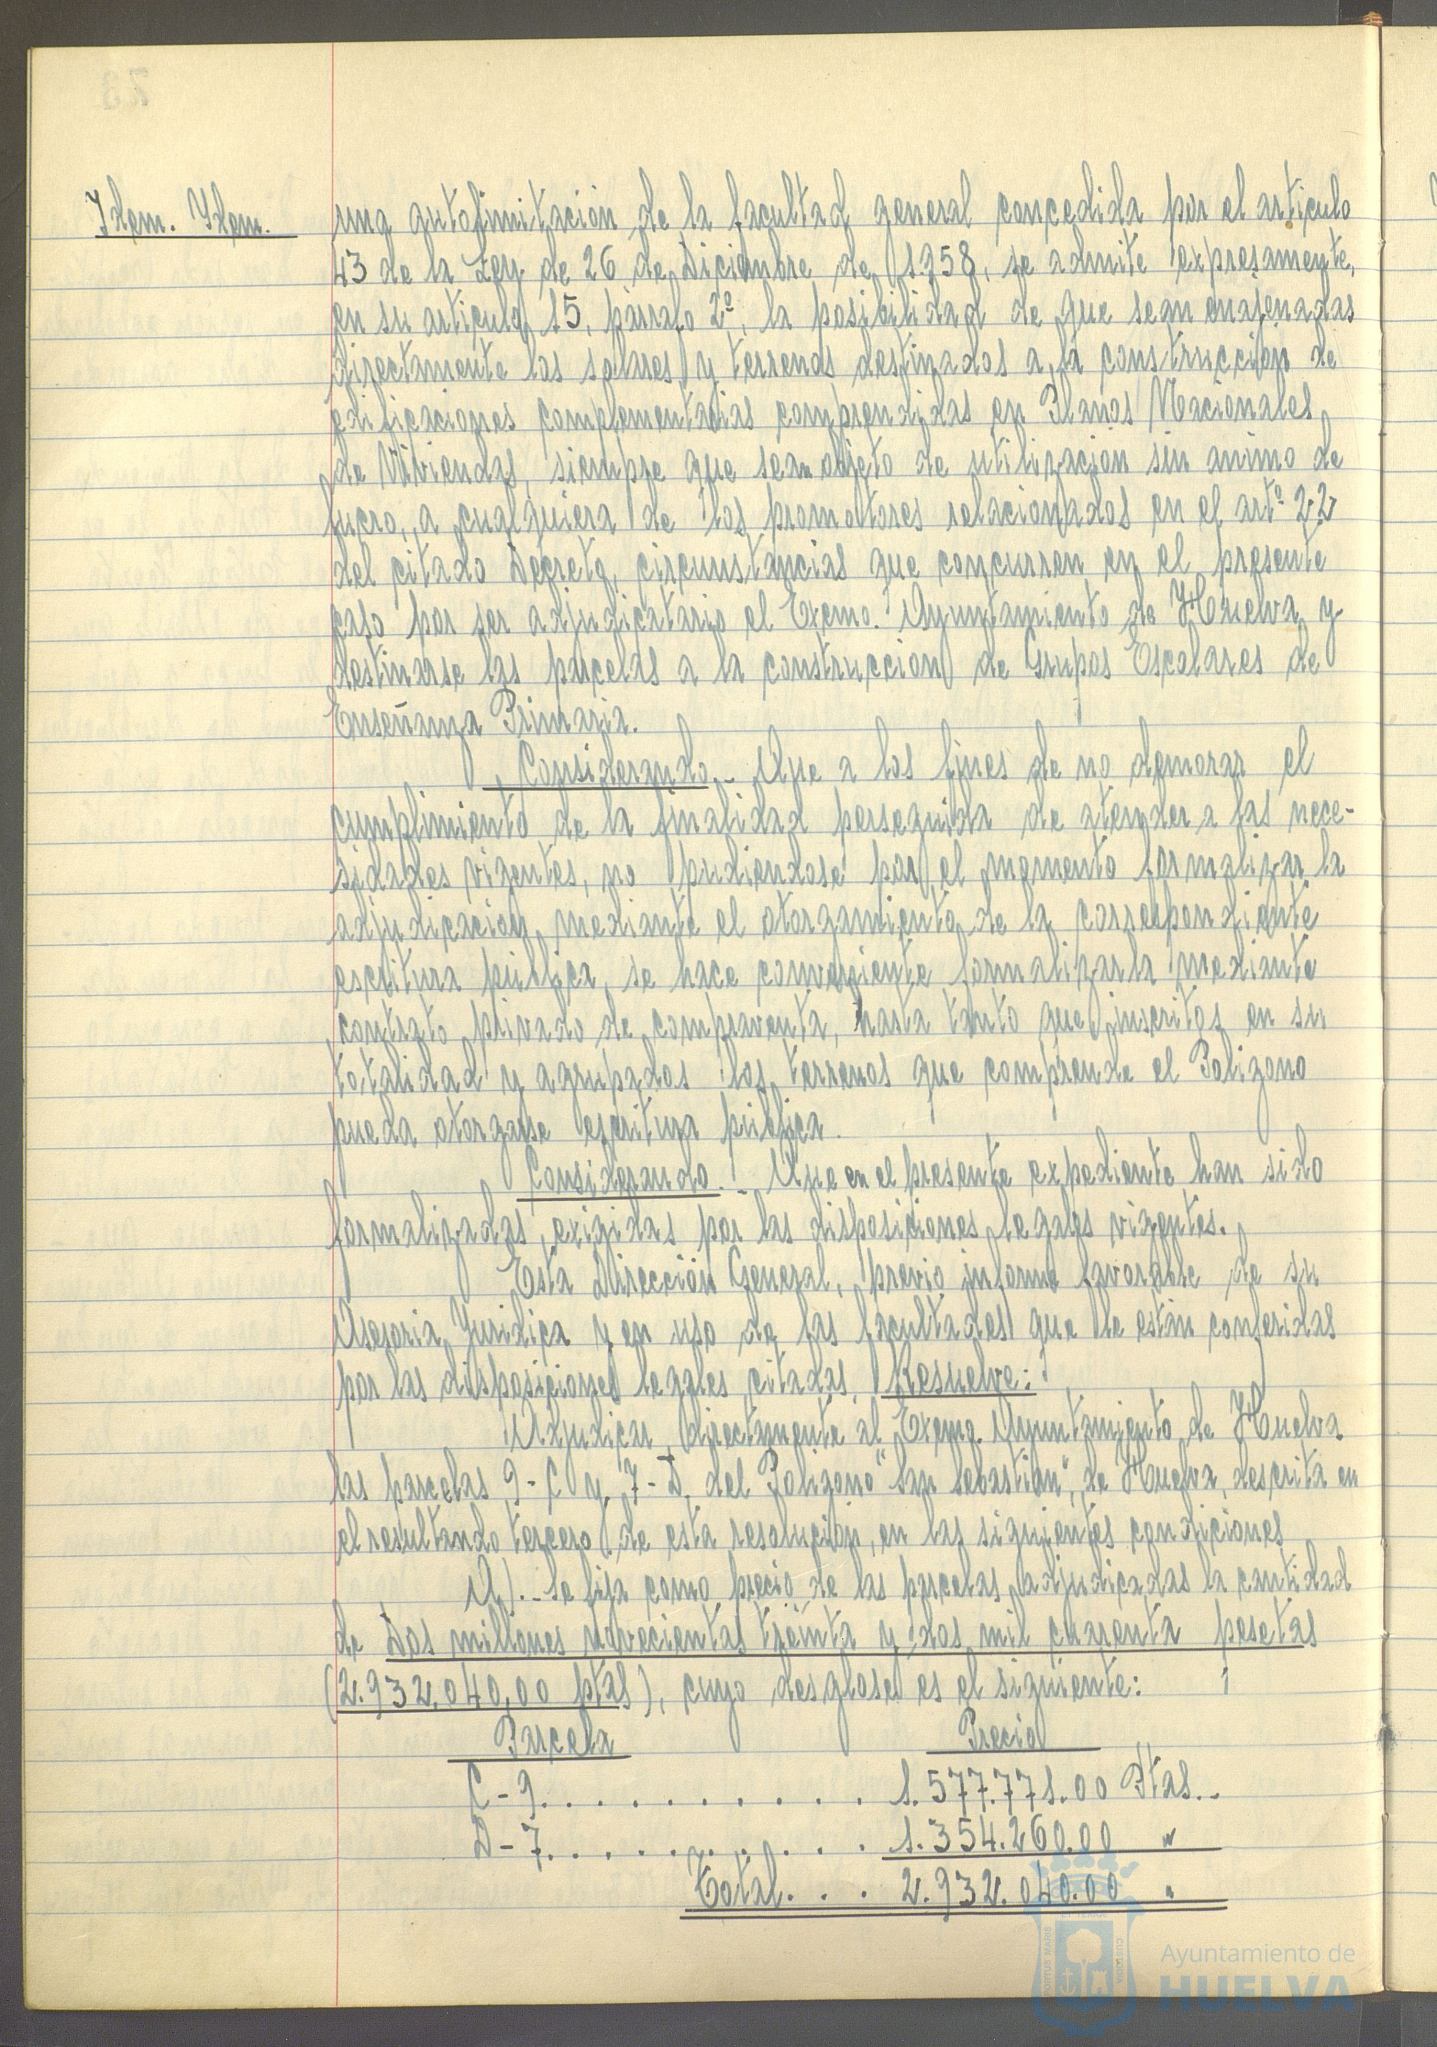 Idem. Idem.
una autolimitación de la facultad general concedida por el artículo
43 de la Ley de 26 de Diciembre de 1.958, se admite expresamente,
en su articulo 15, párrafo 2º, la posibilidad de que sean enajenadas
directamente los solares y terrenos destinados a la construcción de
edificaciones complementarias comprendidas en Planos Nacionales
de Viviendas, siempre que sean objeto de utilización sin animo de
lucro, a cualquiera de los promotores relacionados en el artº 22
del citado Decreto, circunstancias que concurren en el presente
caso por ser adjudicatario el Excmo. Ayuntamiento de Huelva y
destinarse las parcelas a la construccion de Grupos Escolares de
Enseñanza Primaria.
Considerando.- Que a los fines de no demorar el
cumplimiento de la finalidad perseguida de atender a las nece-
sidades vigentes, no pudiendose por el momento formalizar la
adjudicación mediante el otorgamiento de la correspondiente
escritura pública, se hace conveniente formalizarla mediante
contrato privado de compraventa, hasta tanto que inscritos en su
totalidad y agrupados los terrenos que comprende el Poligono
pueda otorgarse escritura pública.
Considerando.- Que en el presente expediente han sido
formalizadas exigidas por las disposiciones legales vigentes.
Esta Dirección General, previo informe favorable de su
Asesoria Juridica y en uso de las facultades que le están conferidas
por las disposiciones legales citadas, Resuelve:
Adjudicar directamente al Excmo. Ayuntamiento de Huelva
las parcelas 9-C y 7-D del Poligono "San Sebastián", de Huelva, descrita en
el resultando tercero de esta resolución, en las siguientes condiciones
A).- Se fija como precio de las parcelas adjudicadas la cantidad
de Dos millones novecientas treinta y dos mil cuarenta pesetas
(2.932.040,00 ptas), cuyo desglose es el siguiente:
Parcela Precio
C-9. . . . . . . . . . 1.577.771.00 Ptas.-
D-7. . . . . . . . . . 1.354.260.00 "
Total. . . 2.932.040.00 "
Ayuntamiento de
HUELVA